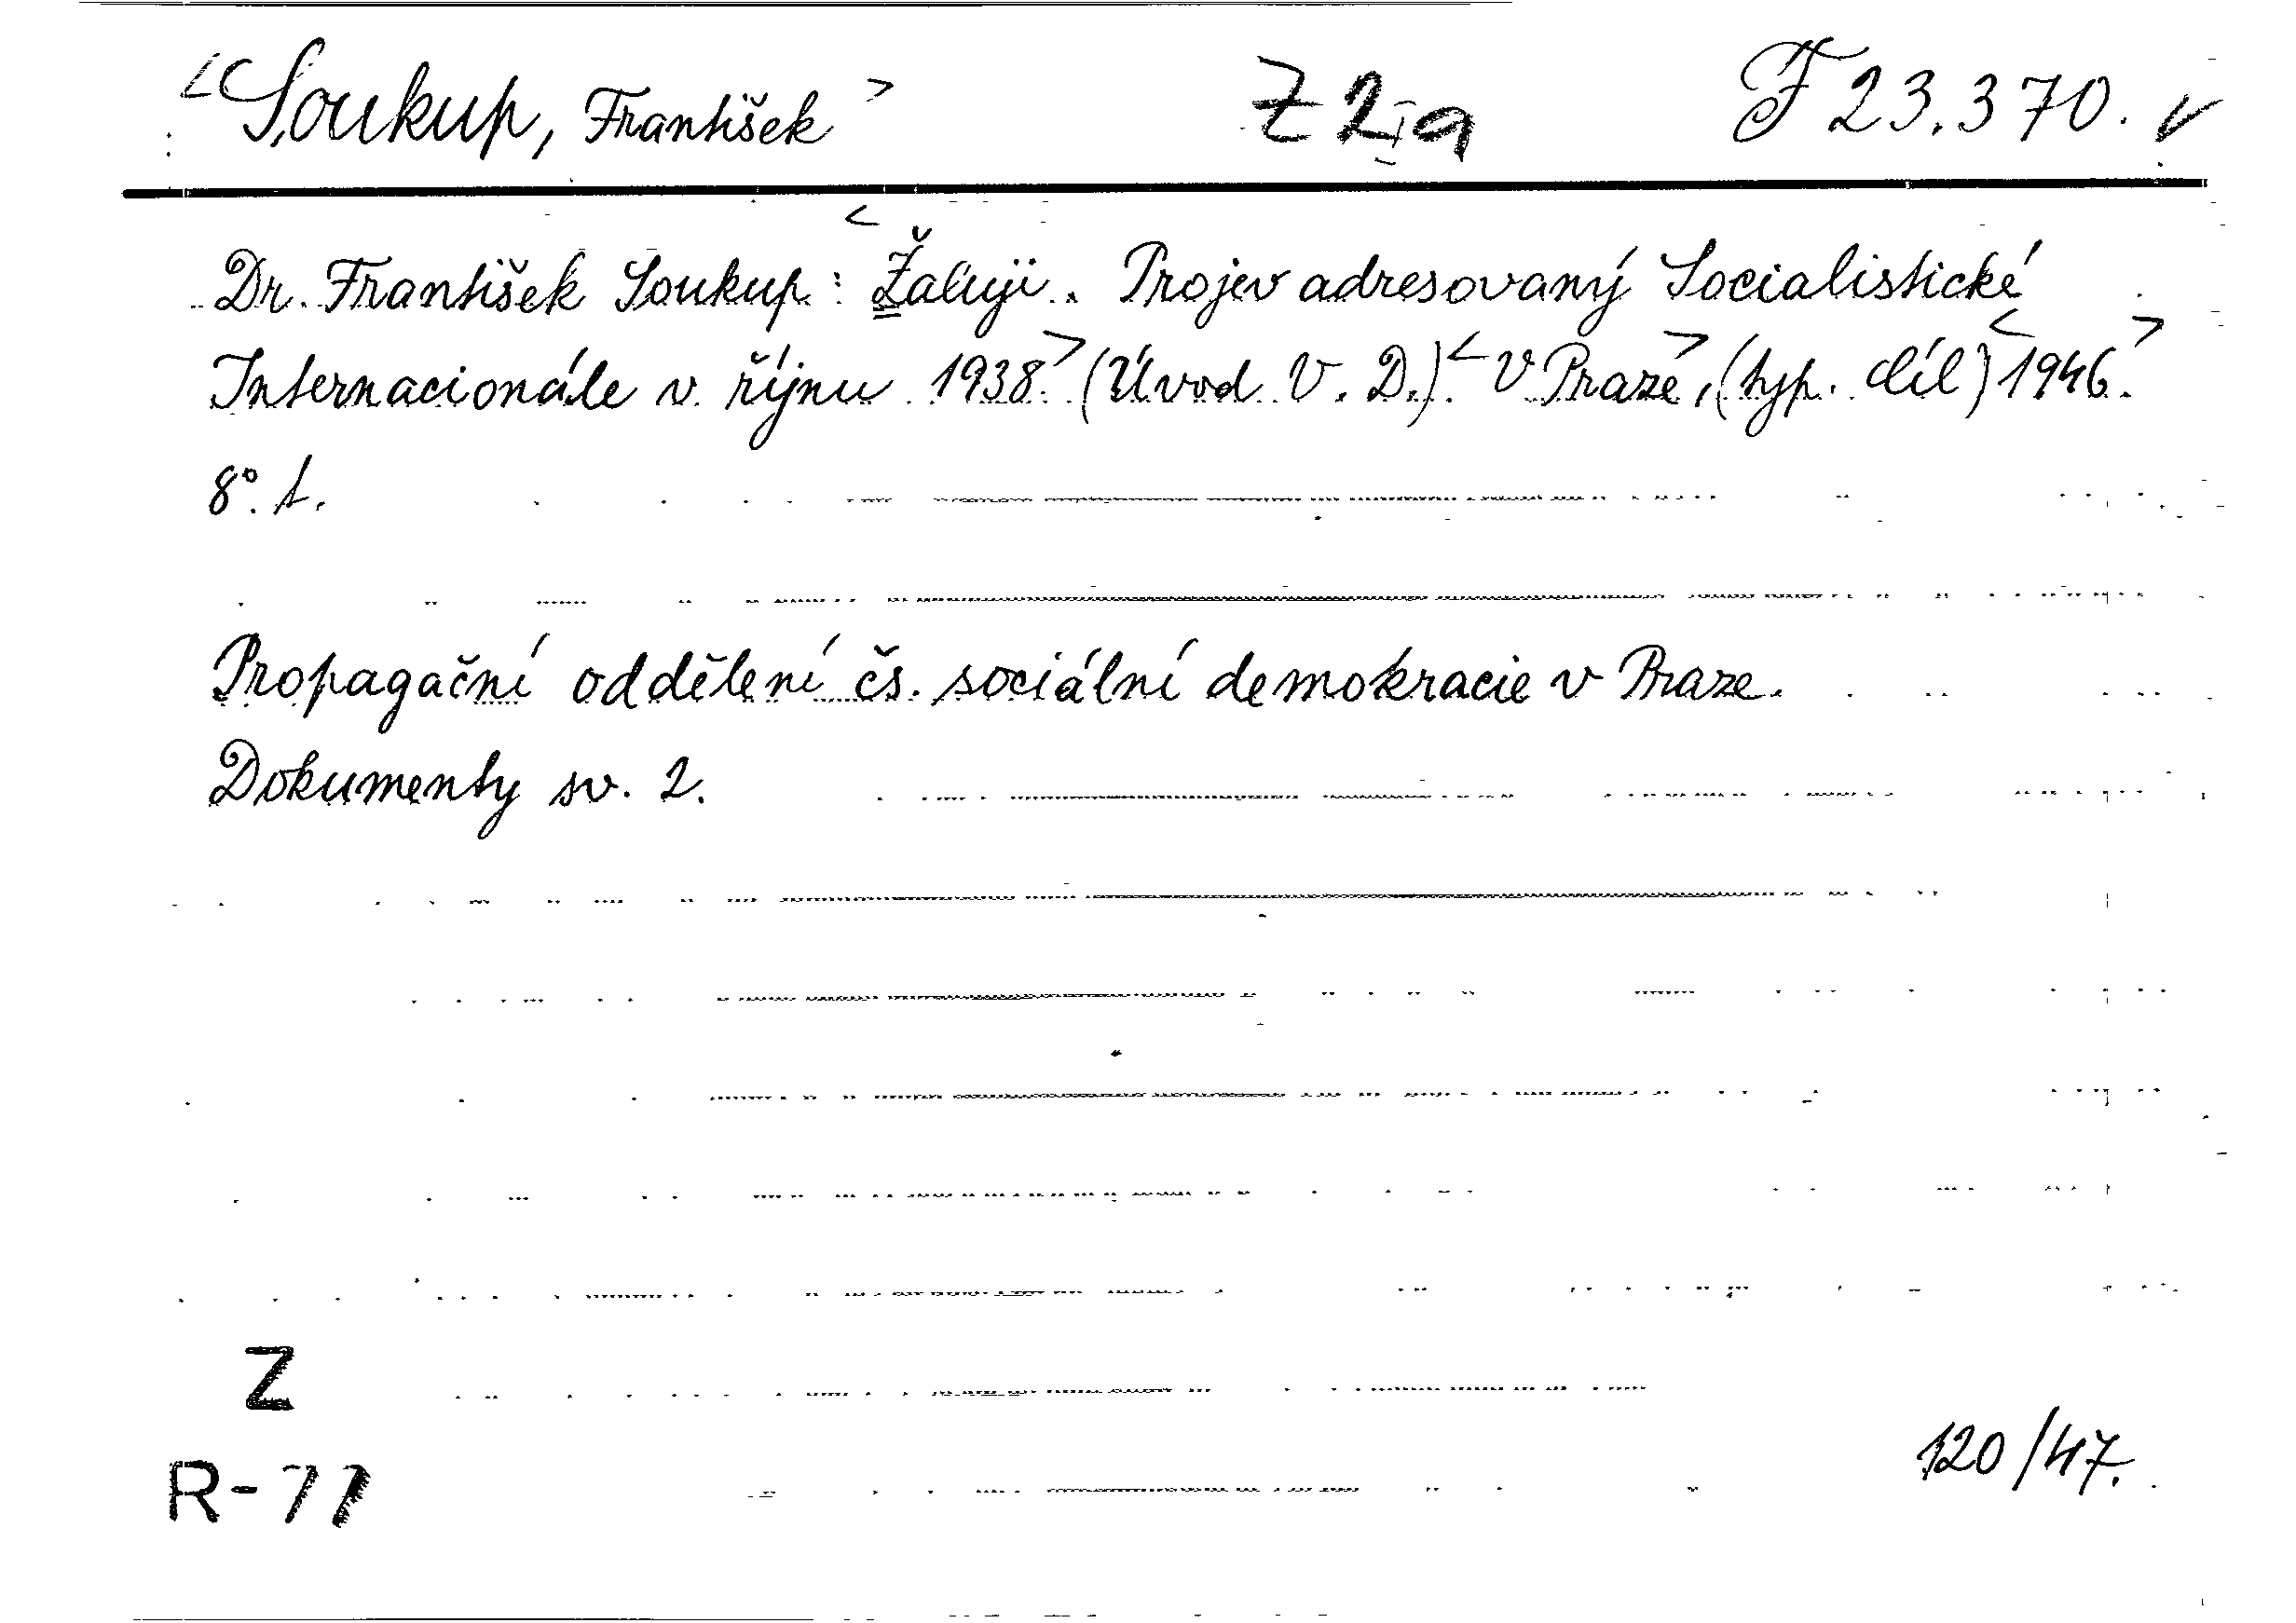 <Soukup, František> Z 2a F 23.370. v
Dr. František Soukup: <Žaluji. Projev adresovaný Socialistické
Internacionále v říjnu 1938.> (Úvod V. D.). <V Praze>, (typ. Díl) <1946.>
8°. t.
Propagační oddělení čs. sociální demokracie v Praze.
Dokumenty sv. 2.
Z
R-77
120/47.